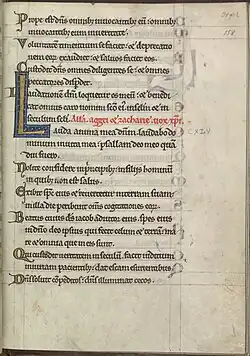 Prope est dñs omnibꝰ inuocantibꝰ eũ: omnibꝰ
inuocantibꝰ eum in ueritate.
Voluntatẽ timentium se faciet: ⁊ deprecatio
nem eoꝝ exaudiet: ⁊ saluos faciet eos.
Custodit dñs omnes diligentes se: ⁊ omnes
peccatores disperdet.
Laudationẽ dñi loquetur os meũ: ⁊ benedi
cat omnis caro nomini sc̃o eiꝰ in seculũ ⁊ in
seculum sc̃li. Aĩla. aggei ⁊ zacharie.
Lauda anima mea dñm: laudabo do
minum in uita mea: psallam deo meo quã
diu fuero.
Nolite confidere in principibꝰ: in filiis hominũ
in quibꝰ non est salus.
Exibit spc̃ eius ⁊ reuertetur in terram suam:
in illa die peribunt om̃s cogitationes eoꝝ.
Beatus cuius ds̃ iacob adiutor eius, spes eius
in dño deo ipsius: qui fecit celum ⁊ terrã: ma
re ⁊ omnia que in eis sunt.
Qui custodit ueritatem in seculũ: facit iudiciũ
iniuriam pacientibꝰ: dat escam esurientibus
Dñs soluit cõpeditos: dñs illuminat cecos.
158